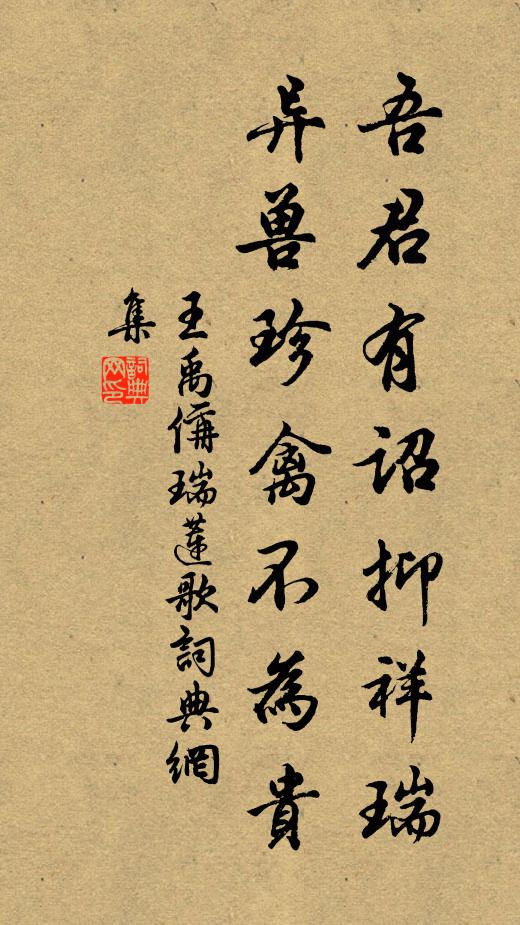 吾君有詔抑祥瑞
异兽珍禽不為貴
王禹偁瑞蓮歌詞典網
集
詞典
网印